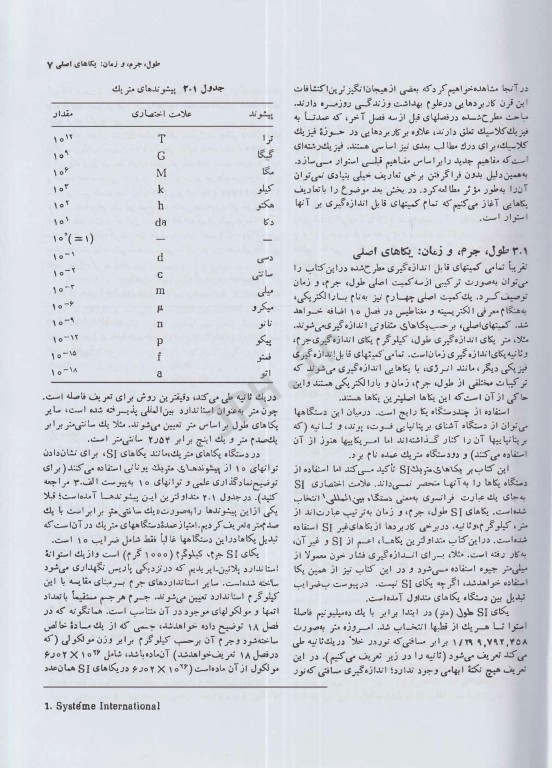 طول، جرم، و زمان: یکاهای اصلی ۷
در آنجا مشاهده خواهیم کرد که بعضی از هیجان‌انگیزترین اکتشافات
این قرن کاربردهایی در علوم بهداشت و زندگی روزمره دارند.
مباحث مطرح‌شده در فصلهای قبل از سه فصل آخر، که عمدتاً به
فیزیک کلاسیک تعلق دارند، علاوه بر کاربردهایی در حوزهٔ فیزیک
کلاسیک، برای درک مطالب بعدی نیز اساسی هستند. فیزیک رشته‌ای
است که مفاهیم جدید را بر اساس مفاهیم قبلی استوار می‌سازد.
به همین دلیل بدون فراگرفتن برخی تعاریف خیلی بنیادی نمی‌توان
آن را به‌طور مؤثر مطالعه کرد. در بخش بعد موضوع را با تعاریف
یکاهایی آغاز می‌کنیم که تمام کمیتهای قابل اندازه‌گیری بر آنها
استوار است.
۳.۱ طول، جرم، و زمان: یکاهای اصلی
تقریباً تمامی کمیتهای قابل اندازه‌گیری مطرح‌شده در این کتاب را
می‌توان به‌صورت ترکیبی از سه کمیت اصلی طول، جرم، و زمان
توصیف کرد. یک کمیت اصلی چهارم نیز به نام بار الکتریکی،
به‌هنگام معرفی الکتریسیته و مغناطیس در فصل ۱۵ اضافه خواهد
شد. کمیتهای اصلی، بر حسب یکاهای متفاوتی اندازه‌گیری می‌شوند.
مثلا، متر یکای اندازه‌گیری طول، کیلوگرم یکای اندازه‌گیری جرم،
و ثانیه یکای اندازه‌گیری زمان است. تمامی کمیتهای قابل اندازه‌گیری
فیزیکی دیگر، مانند انرژی، با یکاهایی اندازه‌گیری می‌شوند که
ترکیبات مختلفی از طول، جرم، زمان و بار الکتریکی هستند و این
حاکی از آن است که این یکاها اصلیترین یکاها هستند.
استفاده از چند دستگاه یکا رایج است. درمیان این دستگاهها
می‌توان از دستگاه آشنای بریتانیایی فوت، پوند، و ثانیه (که
بریتانیاییها آن را کنار گذاشته‌اند اما امریکاییها هنوز از آن
استفاده می‌کنند) و دو دستگاه متریک عمده نام برد.
این کتاب بر یکاهای متریک SI تأکید می‌کند اما استفاده از
دستگاه یکاها را به آنها منحصر نمی‌داند. علامت اختصاری SI
به‌جای یک عبارت فرانسوی به‌معنی دستگاه بین‌المللی۱ انتخاب
شده‌است. یکاهای SI طول، جرم، و زمان به‌ترتیب عبارت‌اند از
متر، کیلوگرم، و ثانیه. در برخی کاربردها از یکاهای غیر SI استفاده
شده‌است. در این کتاب متداولترین یکاها، اعم از SI و غیر آن،
به‌کار رفته است. مثلا، برای اندازه‌گیری فشار خون معمولا از
میلی‌متر جیوه استفاده می‌شود و در این کتاب نیز از همین یکا
استفاده خواهد شد، اگرچه یکای SI نیست. در پیوست ب ضرایب
تبدیل بین دستگاه یکاهای متداول آمده‌است.
یکای SI طول (متر) در ابتدا برابر با یک ده‌میلیونیم فاصلهٔ
استوا تا هر یک از قطبها انتخاب شد. امروزه متر به‌صورت
۱/۲۹۹,۷۹۲,۴۵۸ برابر مسافتی که نور در خلأ در یک ثانیه طی
می‌کند تعریف می‌شود (ثانیه را در زیر تعریف می‌کنیم). در این
تعریف هیچ نکتهٔ ابهامی وجود ندارد؛ اندازه‌گیری مسافتی که نور
جدول ۲.۱ پیشوندهای متریک
پیشوند علامت اختصاری مقدار
ترا T ۱۰۱۲
گیگا G ۱۰۹
مگا M ۱۰۶
کیلو k ۱۰۳
هکتو h ۱۰۲
دکا da ۱۰۱
— — ۱۰۰(=۱)
دسی d ۱۰−۱
سانتی c ۱۰−۲
میلی m ۱۰−۳
میکرو μ ۱۰−۶
نانو n ۱۰−۹
پیکو p ۱۰−۱۲
فمتو f ۱۰−۱۵
اتو a ۱۰−۱۸
در یک ثانیه طی می‌کند، دقیقترین روش برای تعریف فاصله است.
چون متر به‌عنوان استاندارد بین‌المللی پذیرفته شده است، سایر
یکاهای طول بر اساس متر تعیین می‌شوند. مثلا یک سانتی‌متر برابر
یک‌صدم متر و یک اینچ برابر ۲٫۵۴ سانتی‌متر است.
در دستگاه یکاهای متریک، مانند یکاهای SI، برای نشان‌دادن
توانهای ۱۰ از پیشوندهای متریک یونانی استفاده می‌کنند (برای
توضیح نمادگذاری علمی و توانهای ۱۰ به پیوست الف.۳ مراجعه
کنید). در جدول ۲.۱ متداولترین این پیشوندها آمده‌است؛ قبلا
یکی از این پیشوندها را به‌صورت «یک سانتی‌متر برابر است با یک
صدم متر» تعریف کردیم. امتیاز عمدهٔ دستگاههای متریک در آن است که
تبدیل یکاها در این دستگاهها غالباً فقط شامل ضرایب ۱۰ است.
یکای SI جرم، کیلوگرم (۱۰۰۰ گرم) است و از یک استوانهٔ
استاندارد پلاتین-ایریدیم که در نزدیکی پاریس نگهداری می‌شود
ساخته شده‌است. سایر استانداردهای جرم بر مبنای مقایسه با این
کیلوگرم استاندارد تعیین می‌شوند. جرم هر جسم مستقیماً با تعداد
اتمها و مولکولهای موجود در آن متناسب است. همانگونه که در
فصل ۱۸ توضیح داده خواهد شد، جسمی که از یک مادهٔ خالص
ساخته شود و جرم آن بر حسب کیلوگرم برابر وزن مولکولی (که
در فصل ۱۸ تعریف خواهد شد) آن ماده باشد، شامل ۶٫۰۲×۱۰۲۶
مولکول از آن ماده است (۶٫۰۲×۱۰۲۶ در یکاهای SI همان عدد
1. Systéme International